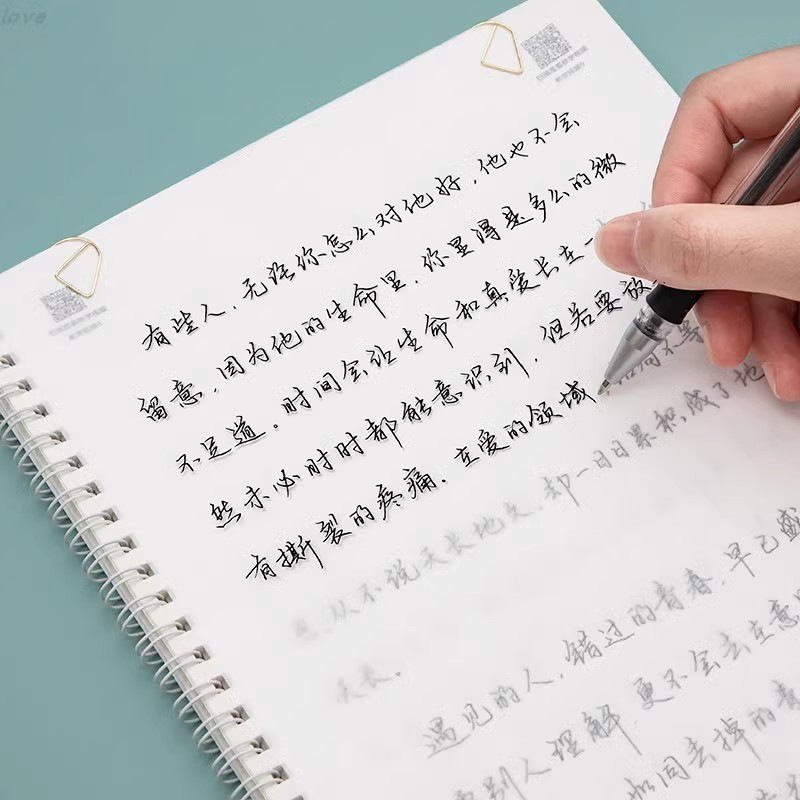 love
有些人,无论你怎么对他好,他也不会
留意,因为他的生命里,你显得是多么的微
不足道。时间会让生命和真爱长在一
然未必时时都能意识到,但若要放
有撕裂的疼痛。在爱的领域
从不说天长地久,却一日日累积,成了地
天长。
遇见的人,错过的青春,早已盛
别人理解 更不会去在意
如同丢掉的青